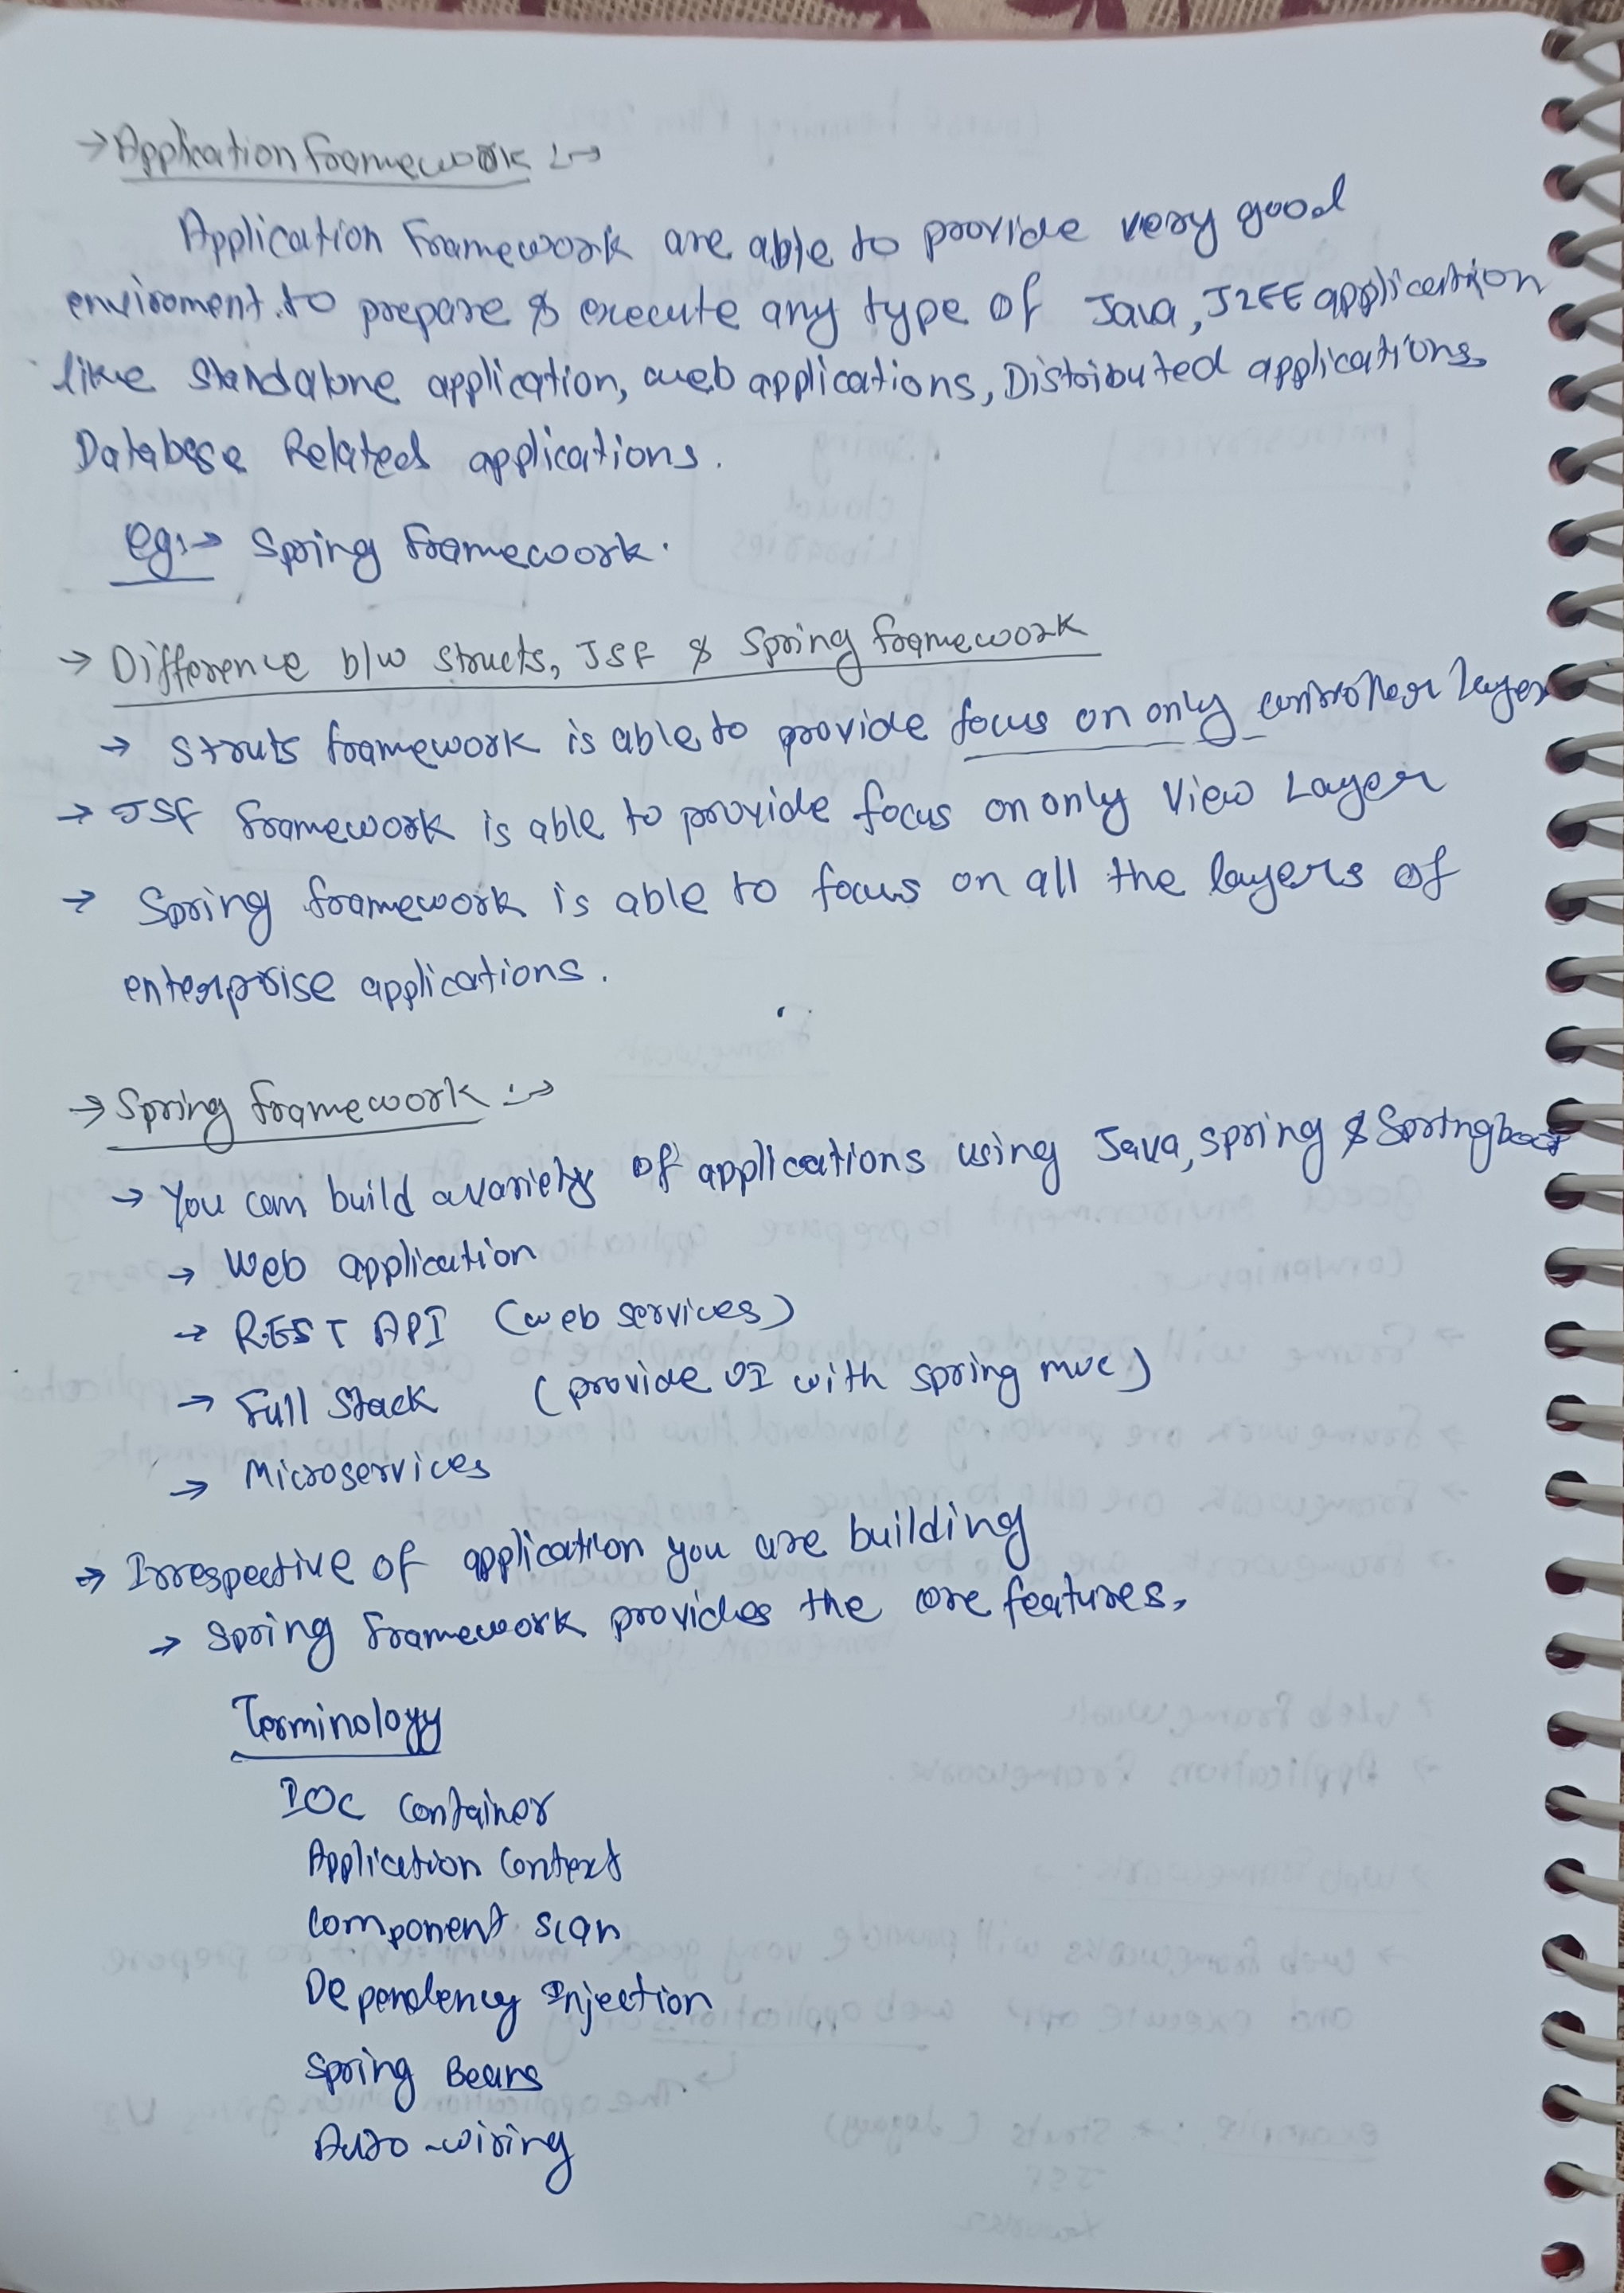 → Application Framework :→
Application Framework are able to provide very good
enviroment to prepare & execute any type of Java, J2EE application
like Standalone application, web applications, Distributed applications
Database Related applications.
eg:→ Spring Framework.
→ Difference b/w Structs, JSF & Spring framework
→ Struts framework is able to provide focus on only controller layer
→ JSF framework is able to provide focus on only View Layer
→ Spring framework is able to focus on all the layers of
enterprise applications.
→ Spring framework :→
→ You can build a variety of applications using Java, Spring & Springboot
→ Web application
→ REST API (web services)
→ Full Stack (provide UI with spring mvc)
→ Microservices
→ Irrespective of application you are building
→ Spring Framework provides the core features,
Terminology
IOC Container
Application Context
Component Scan
Dependency Injection
Spring Beans
Auto-wiring